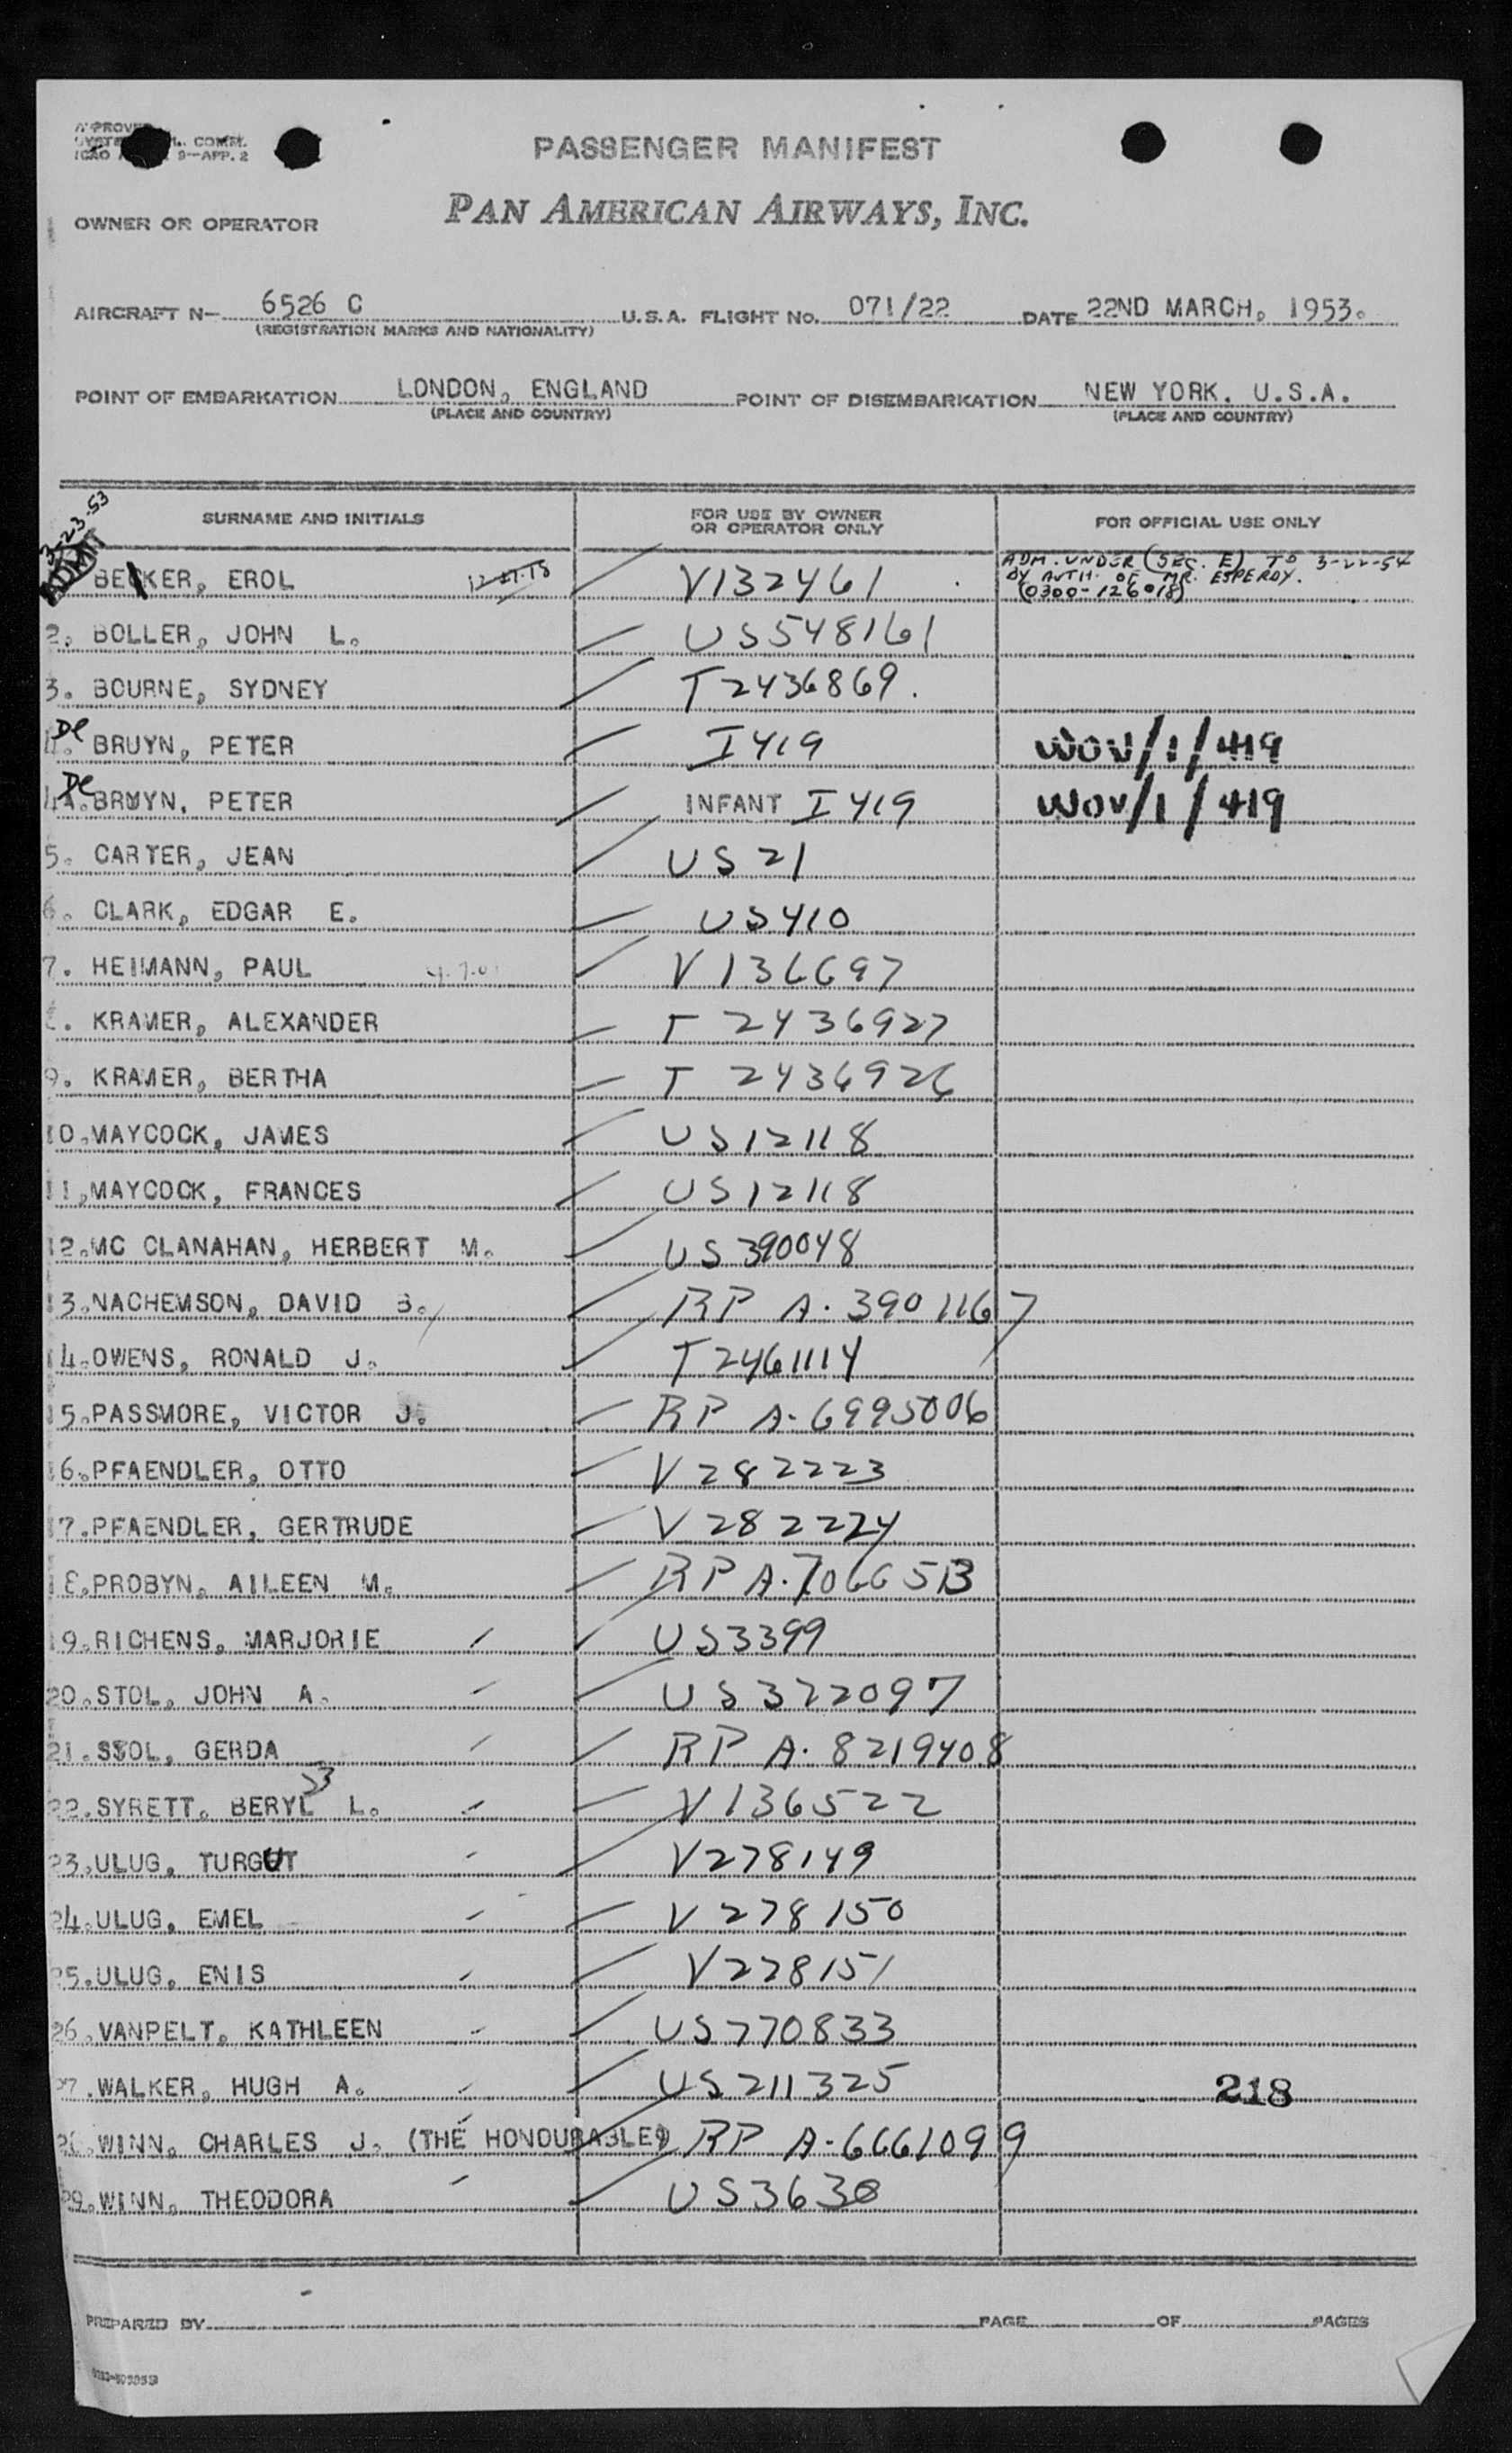 APPROVED
COMM.
ICAO 9-APP. 2
PASSENGER MANIFEST
PAN AMERICAN AIRWAYS, INC.
OWNER OR OPERATOR
AIRCRAFT N- 6526 C U.S.A. FLIGHT No. 071/22 DATE 22ND MARCH, 1953.
(REGISTRATION MARKS AND NATIONALITY)
POINT OF EMBARKATION LONDON, ENGLAND POINT OF DISEMBARKATION NEW YORK. U.S.A.
(PLACE AND COUNTRY) (PLACE AND COUNTRY)
3-23-53
ADMIT
SURNAME AND INITIALS FOR USE BY OWNER OR OPERATOR ONLY FOR OFFICIAL USE ONLY
BEKER, EROL V132461 ADM. UNDER (SEC. E) TO 3-22-54
BY AUTH. OF MR. ESPERDY.
(0300-126018)
2. BOLLER, JOHN L. US548161
3. BOURNE, SYDNEY T2436869.
4. De BRUYN, PETER I419 WOV/1/419
4A. De BRUYN, PETER INFANT I419 WOV/1/419
5. CARTER, JEAN US21
6. CLARK, EDGAR E. US410
7. HEIMANN, PAUL V136697
KRAMER, ALEXANDER T 2436927
9. KRAMER, BERTHA T 2436926
10. MAYCOCK, JAMES US12118
11. MAYCOCK, FRANCES US12118
12. MC CLANAHAN, HERBERT M. US390048
13. NACHEMSON, DAVID B. RP A.3901167
14. OWENS, RONALD J. T2461114
15. PASSMORE, VICTOR J. RP A-6995006
16. PFAENDLER, OTTO V282223
17. PFAENDLER, GERTRUDE V282224
18. PROBYN, AILEEN M. RP A.
19. RICHENS, MARJORIE US3399
20. STOL, JOHN A. US322097
21. SSOL, GERDA RP A. 8219408
22. SYRETT, BERYL L. V136522
23. ULUG, TURGUT V278149
24. ULUG, EMEL V278150
25. ULUG, ENIS V278151
26. VANPELT, KATHLEEN US770833
27. WALKER, HUGH A. US211325 218
28. WINN, CHARLES J. (THE HONOURABLE) RP A-6661099
29. WINN, THEODORA US3630
PREPARED BY PAGE OF PAGES